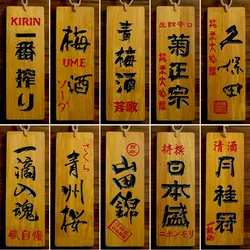 KIRIN
一番搾り
梅酒
UME
ソーダ
青梅酒
生酛辛口
菊正宗
純米大吟醸
久保田
純米大吟醸
一滴入魂
蔵自慢
さくら
青州桜
山田錦
特撰
日本盛
清酒
月桂冠